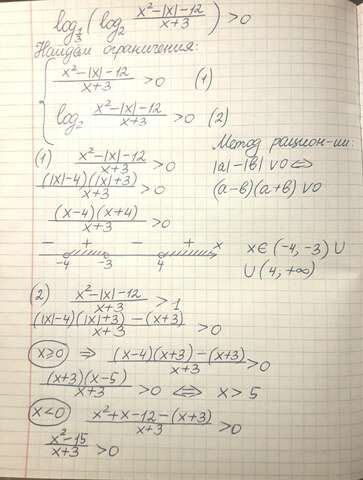 log_{1/3}(log_2 (x²-|x|-12)/(x+3)) > 0
Найдём ограничения:
{ (x²-|x|-12)/(x+3) > 0 (1)
log_2 (x²-|x|-12)/(x+3) > 0 (2)
Метод рацион-ии:
|a|-|b| ∨ 0 ⇔
(a-b)(a+b) ∨ 0
(1) (x²-|x|-12)/(x+3) > 0
(|x|-4)(|x|+3)/(x+3) > 0
(x-4)(x+4)/(x+3) > 0
- + - + x
-4 -3 4
x ∈ (-4, -3) ∪
∪ (4, +∞)
(2) (x²-|x|-12)/(x+3) > 1
((|x|-4)(|x|+3)-(x+3))/(x+3) > 0
x≥0 ⇒ ((x-4)(x+3)-(x+3))/(x+3) > 0
(x+3)(x-5)/(x+3) > 0 ⇔ x > 5
x<0 (x²+x-12-(x+3))/(x+3) > 0
(x²-15)/(x+3) > 0